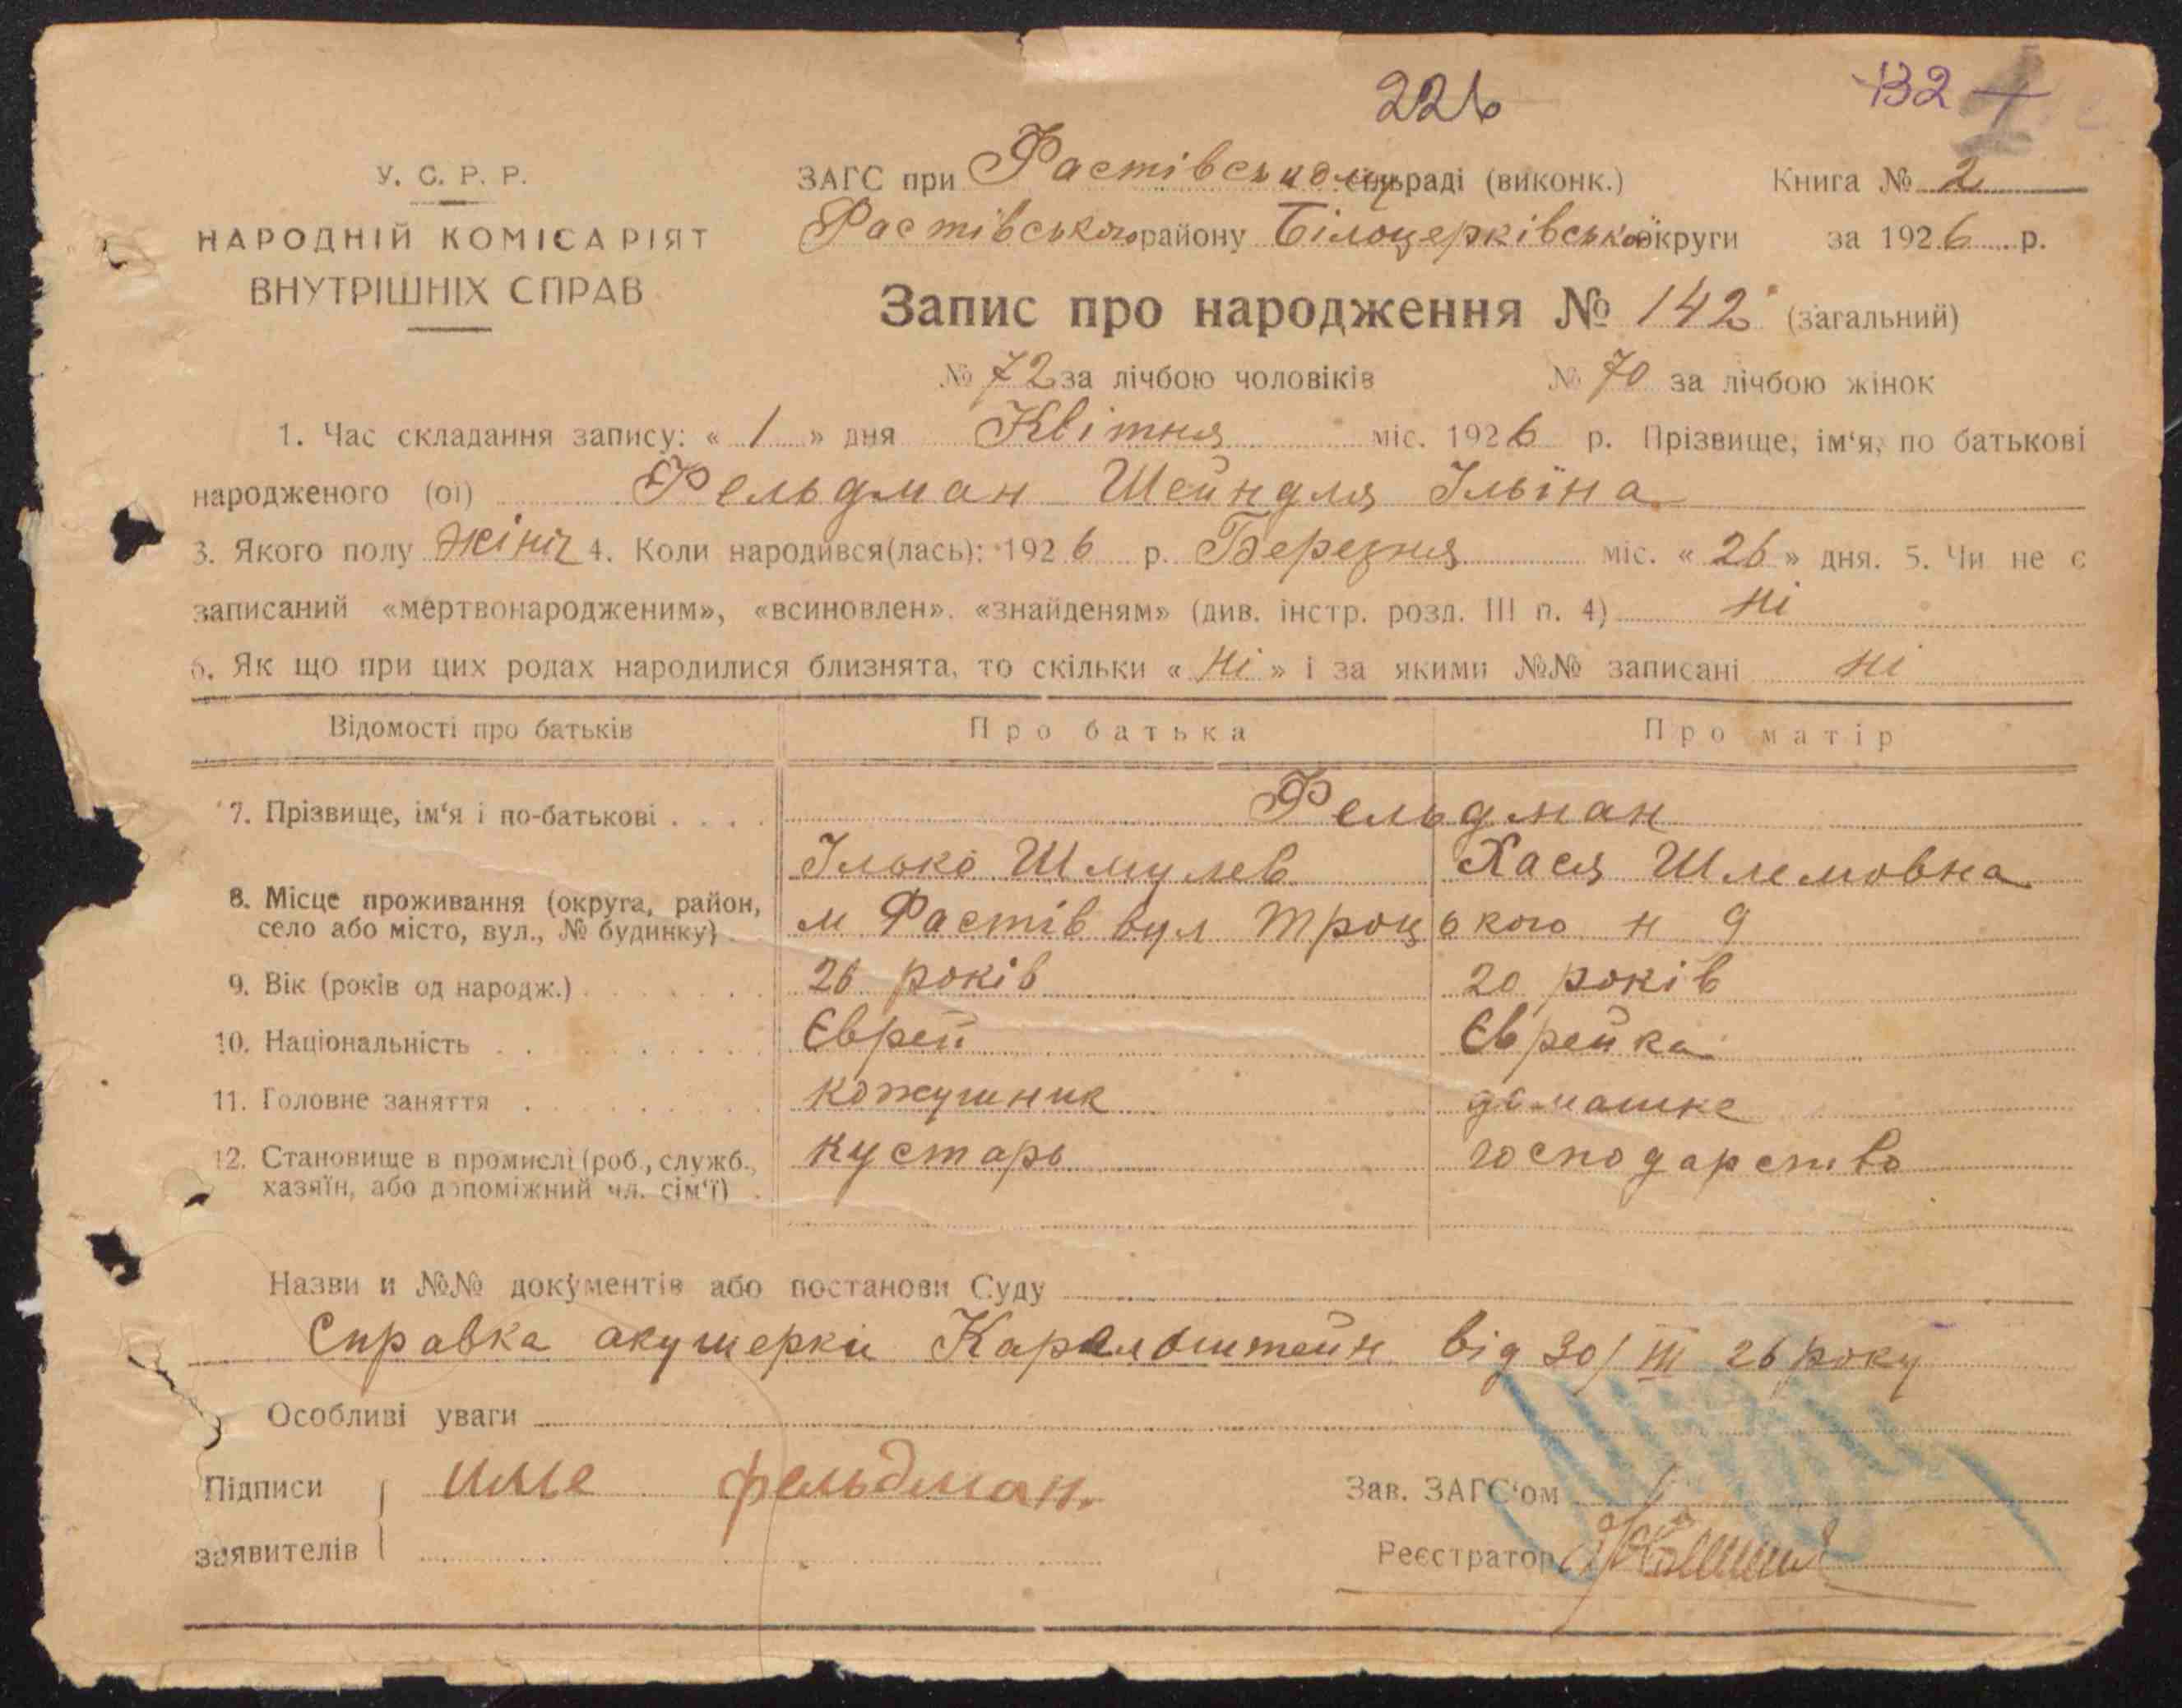 226
132
У. С. Р. Р.
НАРОДНІЙ КОМІСАРІЯТ
ВНУТРІШНІХ СПРАВ
ЗАГС при Фастівському сільраді (виконк.) Книга № 2
Фастівського району Білоцерківської округи за 1926 р.
Запис про народження № 142 (загальний)
№ 72 за лічбою чоловіків № 70 за лічбою жінок
1. Час складання запису: « 1 » дня Квітня міс. 1926 р. Прізвище, ім‘я, по батькові
народженого (ої) Фельдман Шейндля Ільіна
3. Якого полу жіноч 4. Коли народився(лась): 1926 р. Березня міс. « 26 » дня. 5. Чи не є
записаний «мертвонародженим», «всиновлен», «знайденям» (див. інстр. розд. III п. 4) ні
6. Як що при цих родах народилися близнята, то скільки « ні » і за якими №№ записані ні
Відомості про батьків Про батька Про матір
7. Прізвище, ім‘я і по-батькові . . . . Фельдман
Ілько Шмулев Хася Шлемовна
8. Місце проживання (округа, район,
село або місто, вул., № будинку) . м Фастів вул Троцького н 9
9. Вік (років од народж.) 26 років 20 років
10. Національність Єврей Єврейка
11. Головне заняття кожушник домашнє
12. Становище в промислі (роб., служб., кустарь господарство
хазяїн, або допоміжний чл. сім‘ї) .
Назви и №№ документів або постанови Суду
Справка акушерки від 30/III 26 року
Особливі уваги
Підписи Илле фельдман. Зав. ЗАГС‘ом
заявителів Реєстратор